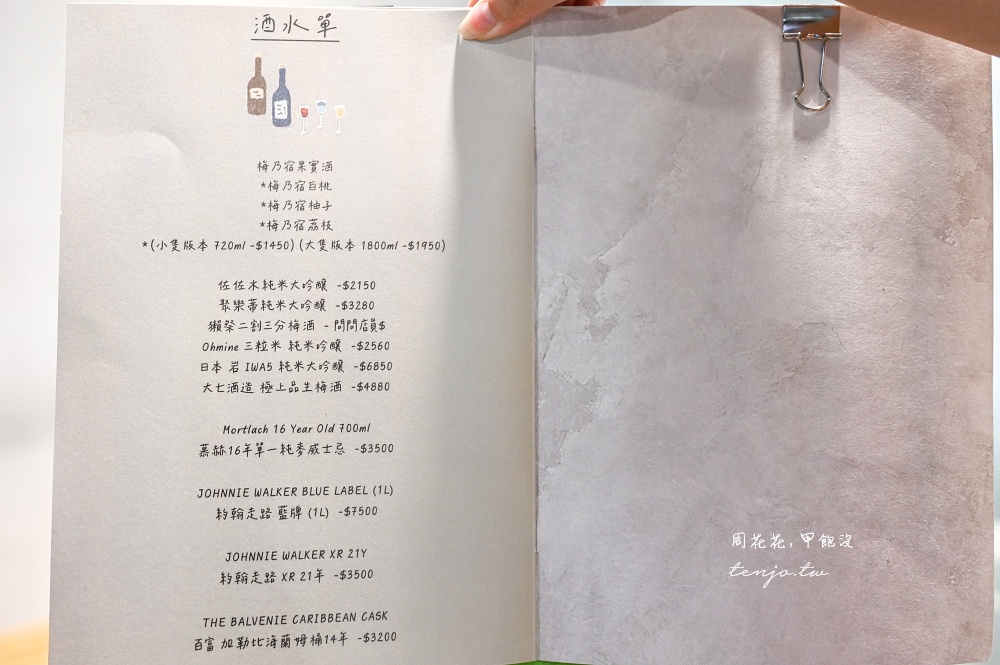 酒水單
梅乃宿果實酒
*梅乃宿白桃
*梅乃宿柚子
*梅乃宿荔枝
*(小隻版本 720ml -$1450) (大隻版本 1800ml -$1950)
佐佐木純米大吟釀 -$2150
聚樂蒂純米大吟釀 -$3280
獺祭二割三分梅酒 - 問問店員$
Ohmine 三粒米 純米吟釀 -$2560
日本 岩 IWA5 純米大吟釀 -$6850
大七酒造 極上品生梅酒 -$4880
Mortlach 16 Year Old 700ml
慕赫16年單一純麥威士忌 -$3500
JOHNNIE WALKER BLUE LABEL (1L)
約翰走路 藍牌 (1L) -$7500
JOHNNIE WALKER XR 21Y
約翰走路 XR 21年 -$3500
THE BALVENIE CARIBBEAN CASK
百富 加勒比海蘭姆桶14年 -$3200
周花花, 甲飽沒
tenjo.tw